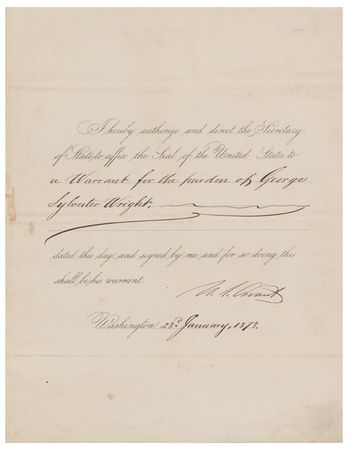 I hereby authorize and direct the Secretary
of State to affix the Seal of the United States to
a Warrant for the pardon of George
Sylvester Wright,
dated this day, and signed by me, and for so doing this
shall be his warrant.
U. S. Grant
Washington 23d January, 1873.